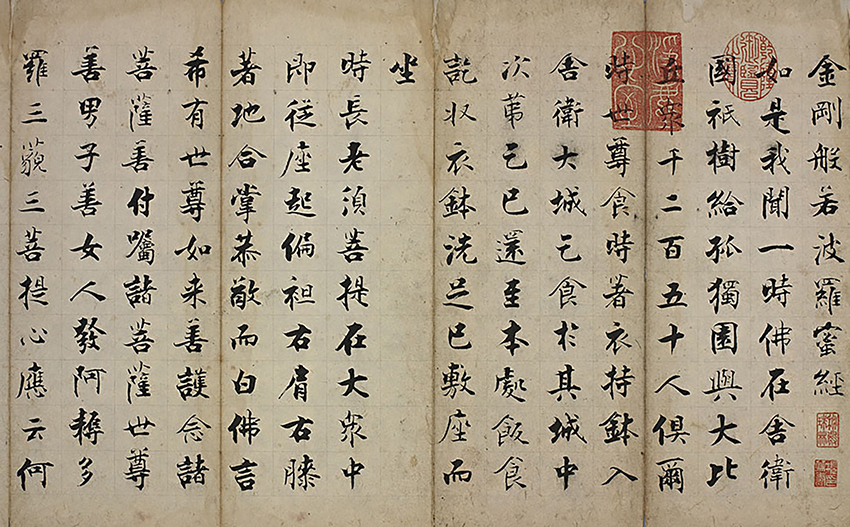 金剛般若波羅蜜經
如是我聞一時佛在舍衛
國祇樹給孤獨園與大比
丘眾千二百五十人俱爾
時世尊食時著衣持鉢入
舍衛大城乞食於其城中
次苐乞已還至本處飯食
訖収衣鉢洗足已敷座而
坐
時長老須菩提在大眾中
即従座起偏袒右肩右膝
著地合掌恭敬而白佛言
希有世尊如来善護念諸
菩薩善付囑諸菩薩世尊
善男子善女人發阿耨多
羅三藐三菩提心應云何